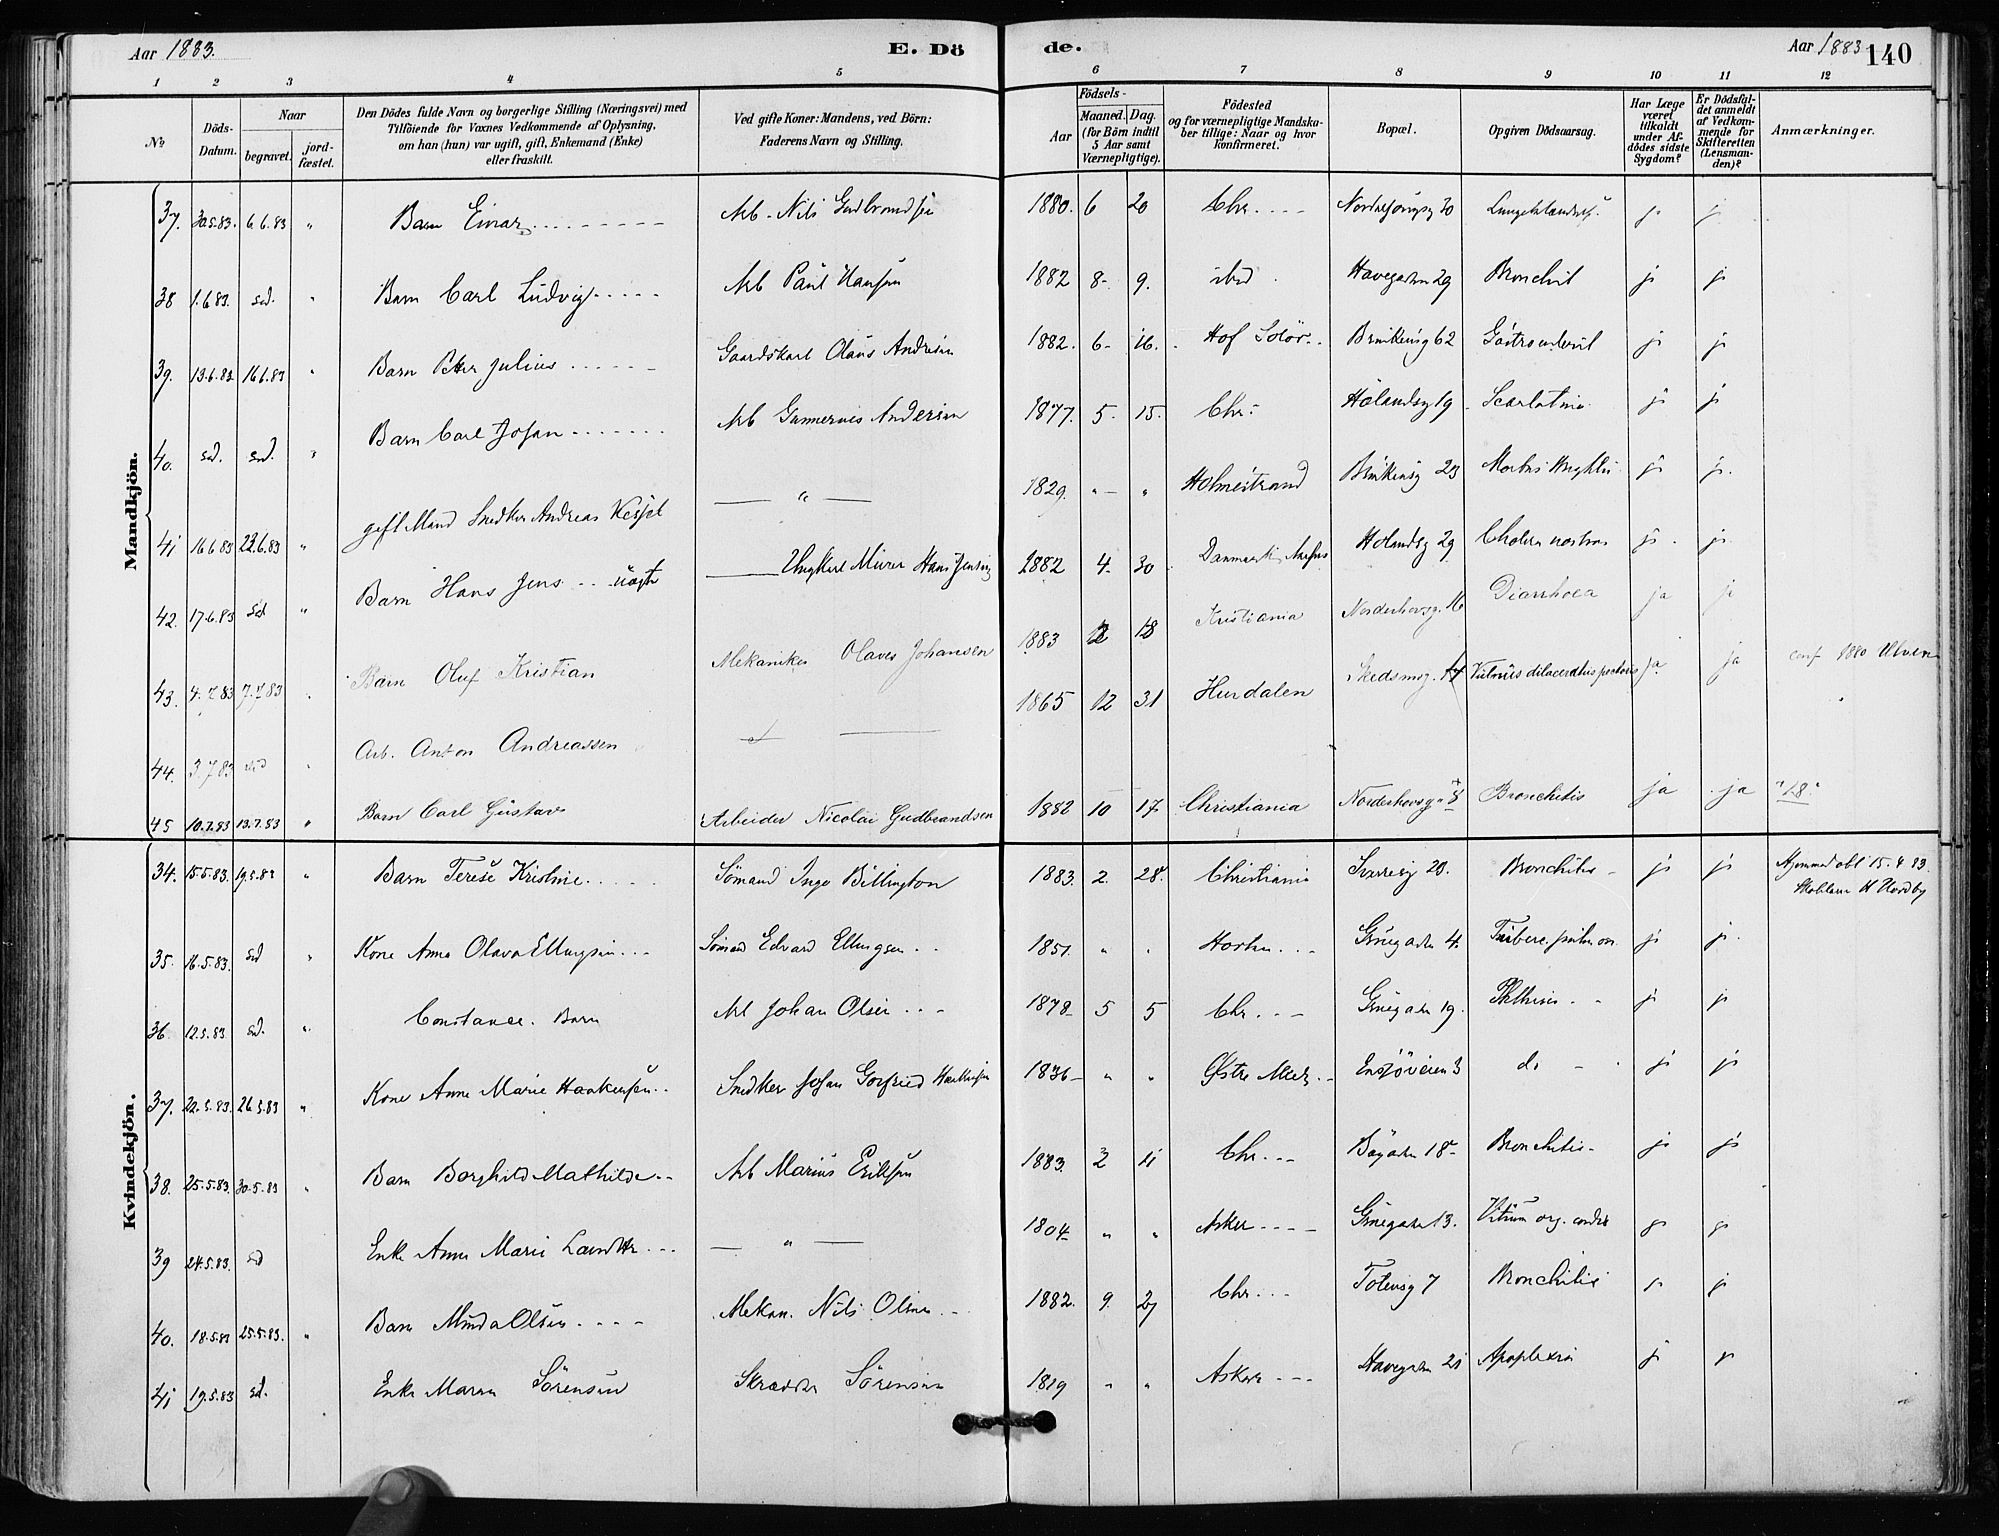 Aar 1883.
E. Dö
de.
Aar 1883
140
1 2 3 4 5 6 7 8 9 10 11 12
No
Döds-Datum.
Naar
begravet.
jord-fæstet.
Den Dödes fulde Navn og borgerlige Stilling (Næringsvei) med
Tilföiende for Voxnes Vedkommende af Oplysning,
om han (hun) var ugift, gift, Enkemand (Enke)
eller fraskilt.
Ved gifte Koner: Mandens, ved Börn:
Faderens Navn og Stilling.
Födsels-
Aar
Maaned. Dag.
(for Börn indtil
5 Aar samt
Værnepligtige).
Födested
og for værnepligtige Mandska-
ber tillige: Naar og hvor
konfirmeret.
Bopæl.
Opgiven Dödsaarsag.
Har Læge
været
tilkaldt
under Af-
dödes sidste
Sygdom?
Er Dödsfal-
det anmeldt
af Vedkom-
mende for
Skifteretten
(Lensman-
den)?
Anmærkninger.
Mandkjön.
37. 30.5.83. 6.6.83 " Barn Einar Arb. Nils Gudbrandsen 1880. 6 20 Chr. 30 ja ja
38 1.6.83. sd. " Barn Carl Ludvig Arb Paul Hansen 1882 8 9. ibid. Havegaden 29 Bronchit ja ja
39. 13.6.83 16.6.83 " Barn Peter Julius Gaardskarl Olaus Andresen 1882. 6 16. Hof Solör Brinkensg 62 ja ja
40. sd. sd. " Barn Carl Johan Arb Andersen 1877. 5. 15. Chr. Hölandsg 19 Scarlatina ja ja
41 16.6.83 22.6.83 " gift Mand Snedker Andreas — " — 1829. " " Holmestrand Brinkensg 23 Morbus ja ja.
42. 17.6.83 sd " Barn Hans Jens uægte Ungkarl Murer Hans Jensen 1882 4. 30 Danmark Hölandsg 29 Cholera nostras ja ja
43. 4.7.83 7.7.83 Barn Oluf Kristian Mekaniker Olaves Johansen 1883 2 18 Kristiania Norderhovsg. 16 Diarrhoea ja ja
44. 3.7.83 Arb. Anton Andreassen 1865 12 31 Hurdalen Skedsmog. Vulnus dilaceratus pectoris ja. ja conf 1880 Ulven
45 10.7.83 13.7.83 " Barn Carl Gustav Arbeider Nicolai Gudbrandsen 1882 10 17 Christiania Norderhovsg. Bronchitis ja ja "18"
Kvindekjön.
34. 15.5.83. 19.5.83 " Barn Terese Kristine Sömand Inge Billington 1883. 2. 28. Christiania 20. Bronchitis ja ja Hjemmedöbt 15.4.83.
35. 16.5.83. sd " Kone Anna Olava Ellingsen Sömand Edvard Ellingsen 1851. " " Horten Grüegaden 4. ja ja.
36 12.5.83. sd. " Constance. Barn Arb Johan Olsen 1878 5 5 Chr. Grüegaden 19. Phthisis ja ja
37. 22.5.83. 26.5.83 " Kone Anne Marie Haakensen Snedker Johan Gotfried 1836 " " Østre Aker Ensjöveien 3 do ja ja
38. 25.5.83. 30.5.83 " Barn Borghild Mathilde Arb Marius Eriksen 1883. 2 11 Chr. Bögaden 18 Bronchitis ja ja
39 24.5.83. sd Enke Anne Marie — " — 1804 " " Asker Grüegaden 13. Vitium org. cordis ja ja
40. 18.5.83 25.5.83. " Barn Minda Olsen Mekan. Nils Olsen 1882. 9. 27 Chr. Totensg 7 Bronchitis ja ja
41 19.5.83 sd. Enke Maren Sörensen Skrædder Sörensen 1819 " " Asker Havegaden 21 Apoplexia ja ja